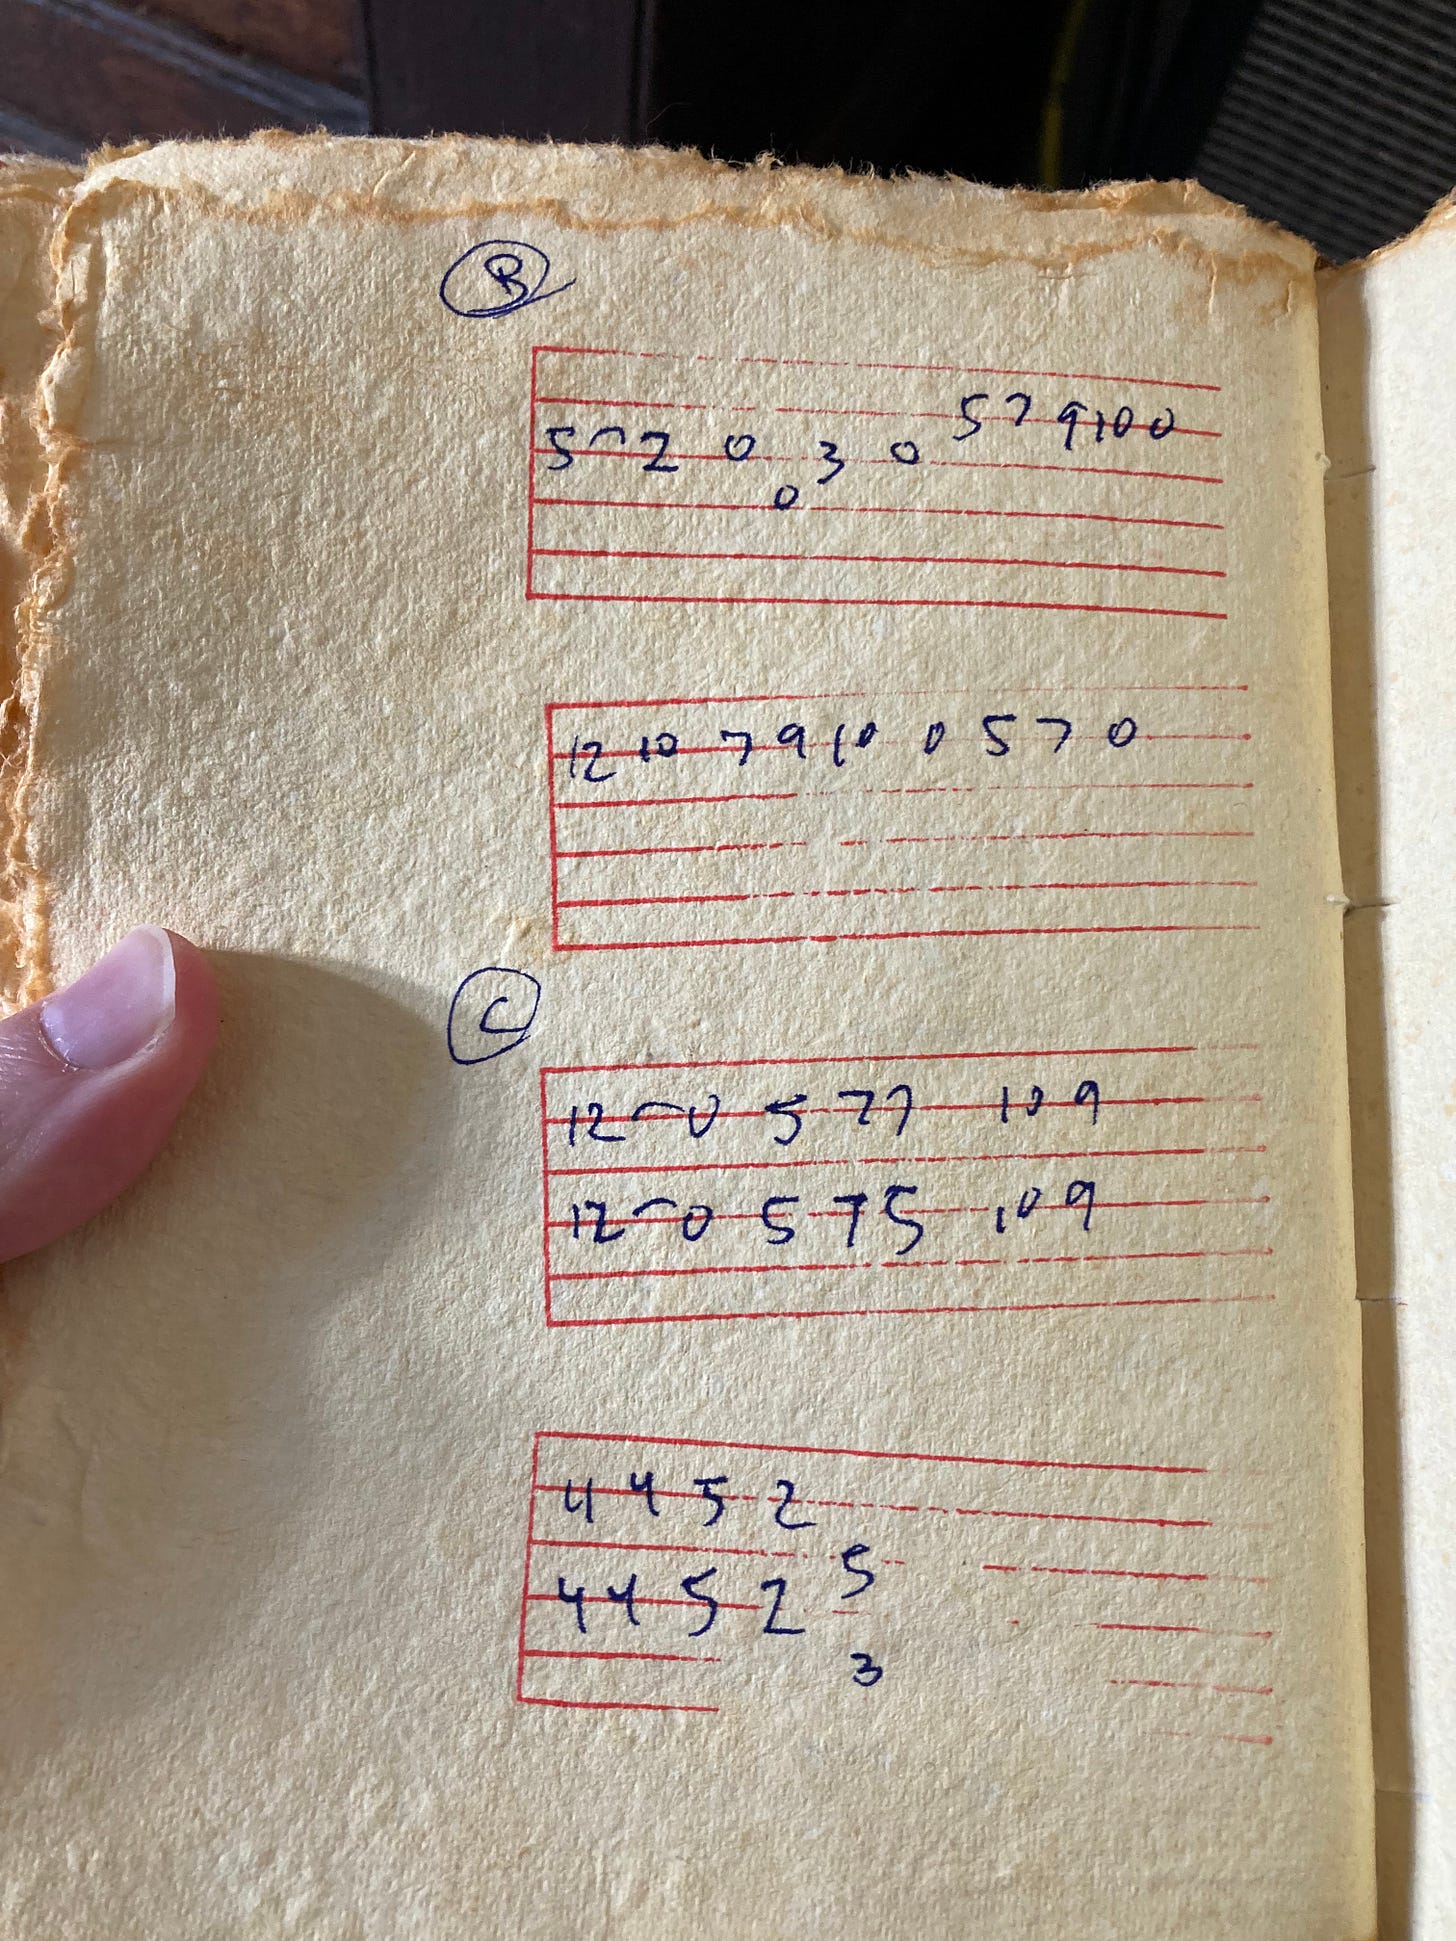 B
5⌒2 0 0 3 0 5 7 9 10 0
12 10 7 9 10 0 5 7 0
C
12⌒0 5 7 7 10 9
12⌒0 5 7 5 10 9
4 4 5 2
4 4 5 2 5
3